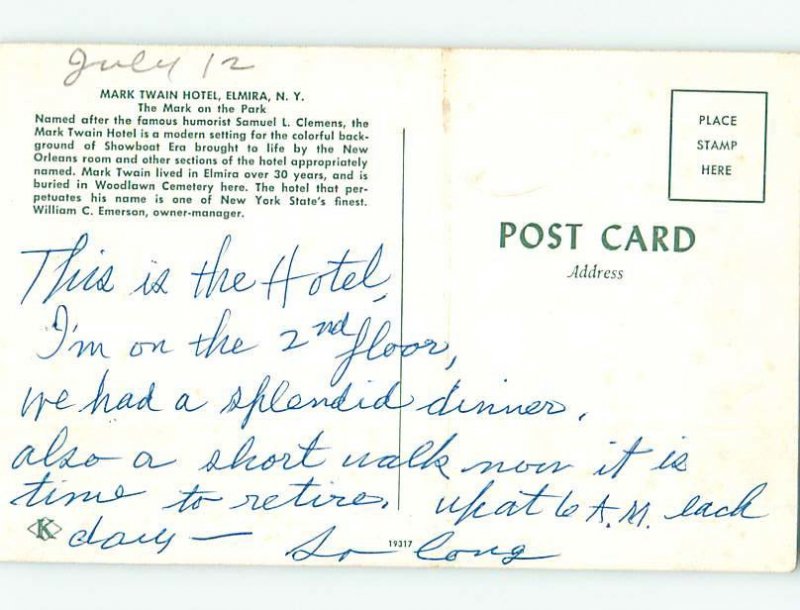 July 12
MARK TWAIN HOTEL, ELMIRA, N. Y.
The Mark on the Park
Named after the famous humorist Samuel L. Clemens, the
Mark Twain Hotel is a modern setting for the colorful back-
ground of Showboat Era brought to life by the New
Orleans room and other sections of the hotel appropriately
named. Mark Twain lived in Elmira over 30 years, and is
buried in Woodlawn Cemetery here. The hotel that per-
petuates his name is one of New York State's finest.
William C. Emerson, owner-manager.
This is the Hotel,
I'm on the 2nd floor,
we had a splendid dinner.
also a short walk now it is
time to retire. up at 6 A.M. each
day —
So long
K
19317
PLACE
STAMP
HERE
POST CARD
Address